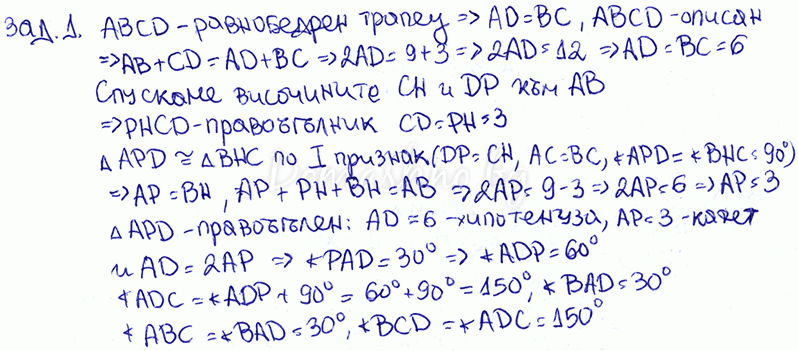 Зад.1. ABCD - равнобедрен трапец => AD=BC, ABCD - описан
=> AB+CD=AD+BC => 2AD=9+3 => 2AD=12 => AD=BC=6
Спускаме височините CH и DP към AB
=> PHCD - правоъгълник CD=PH=3
△APD ≅ △BHC по I признак (DP=CH, AC=BC, ∢APD=∢BHC=90°)
=> AP=BH, AP+PH+BH=AB => 2AP=9-3 => 2AP=6 => AP=3
△APD - правоъгълен: AD=6 - хипотенуза, AP=3 - катет
и AD=2AP => ∢PAD=30° => ∢ADP=60°
∢ADC=∢ADP+90°=60°+90°=150°, ∢BAD=30°
∢ABC=∢BAD=30°, ∢BCD=∢ADC=150°